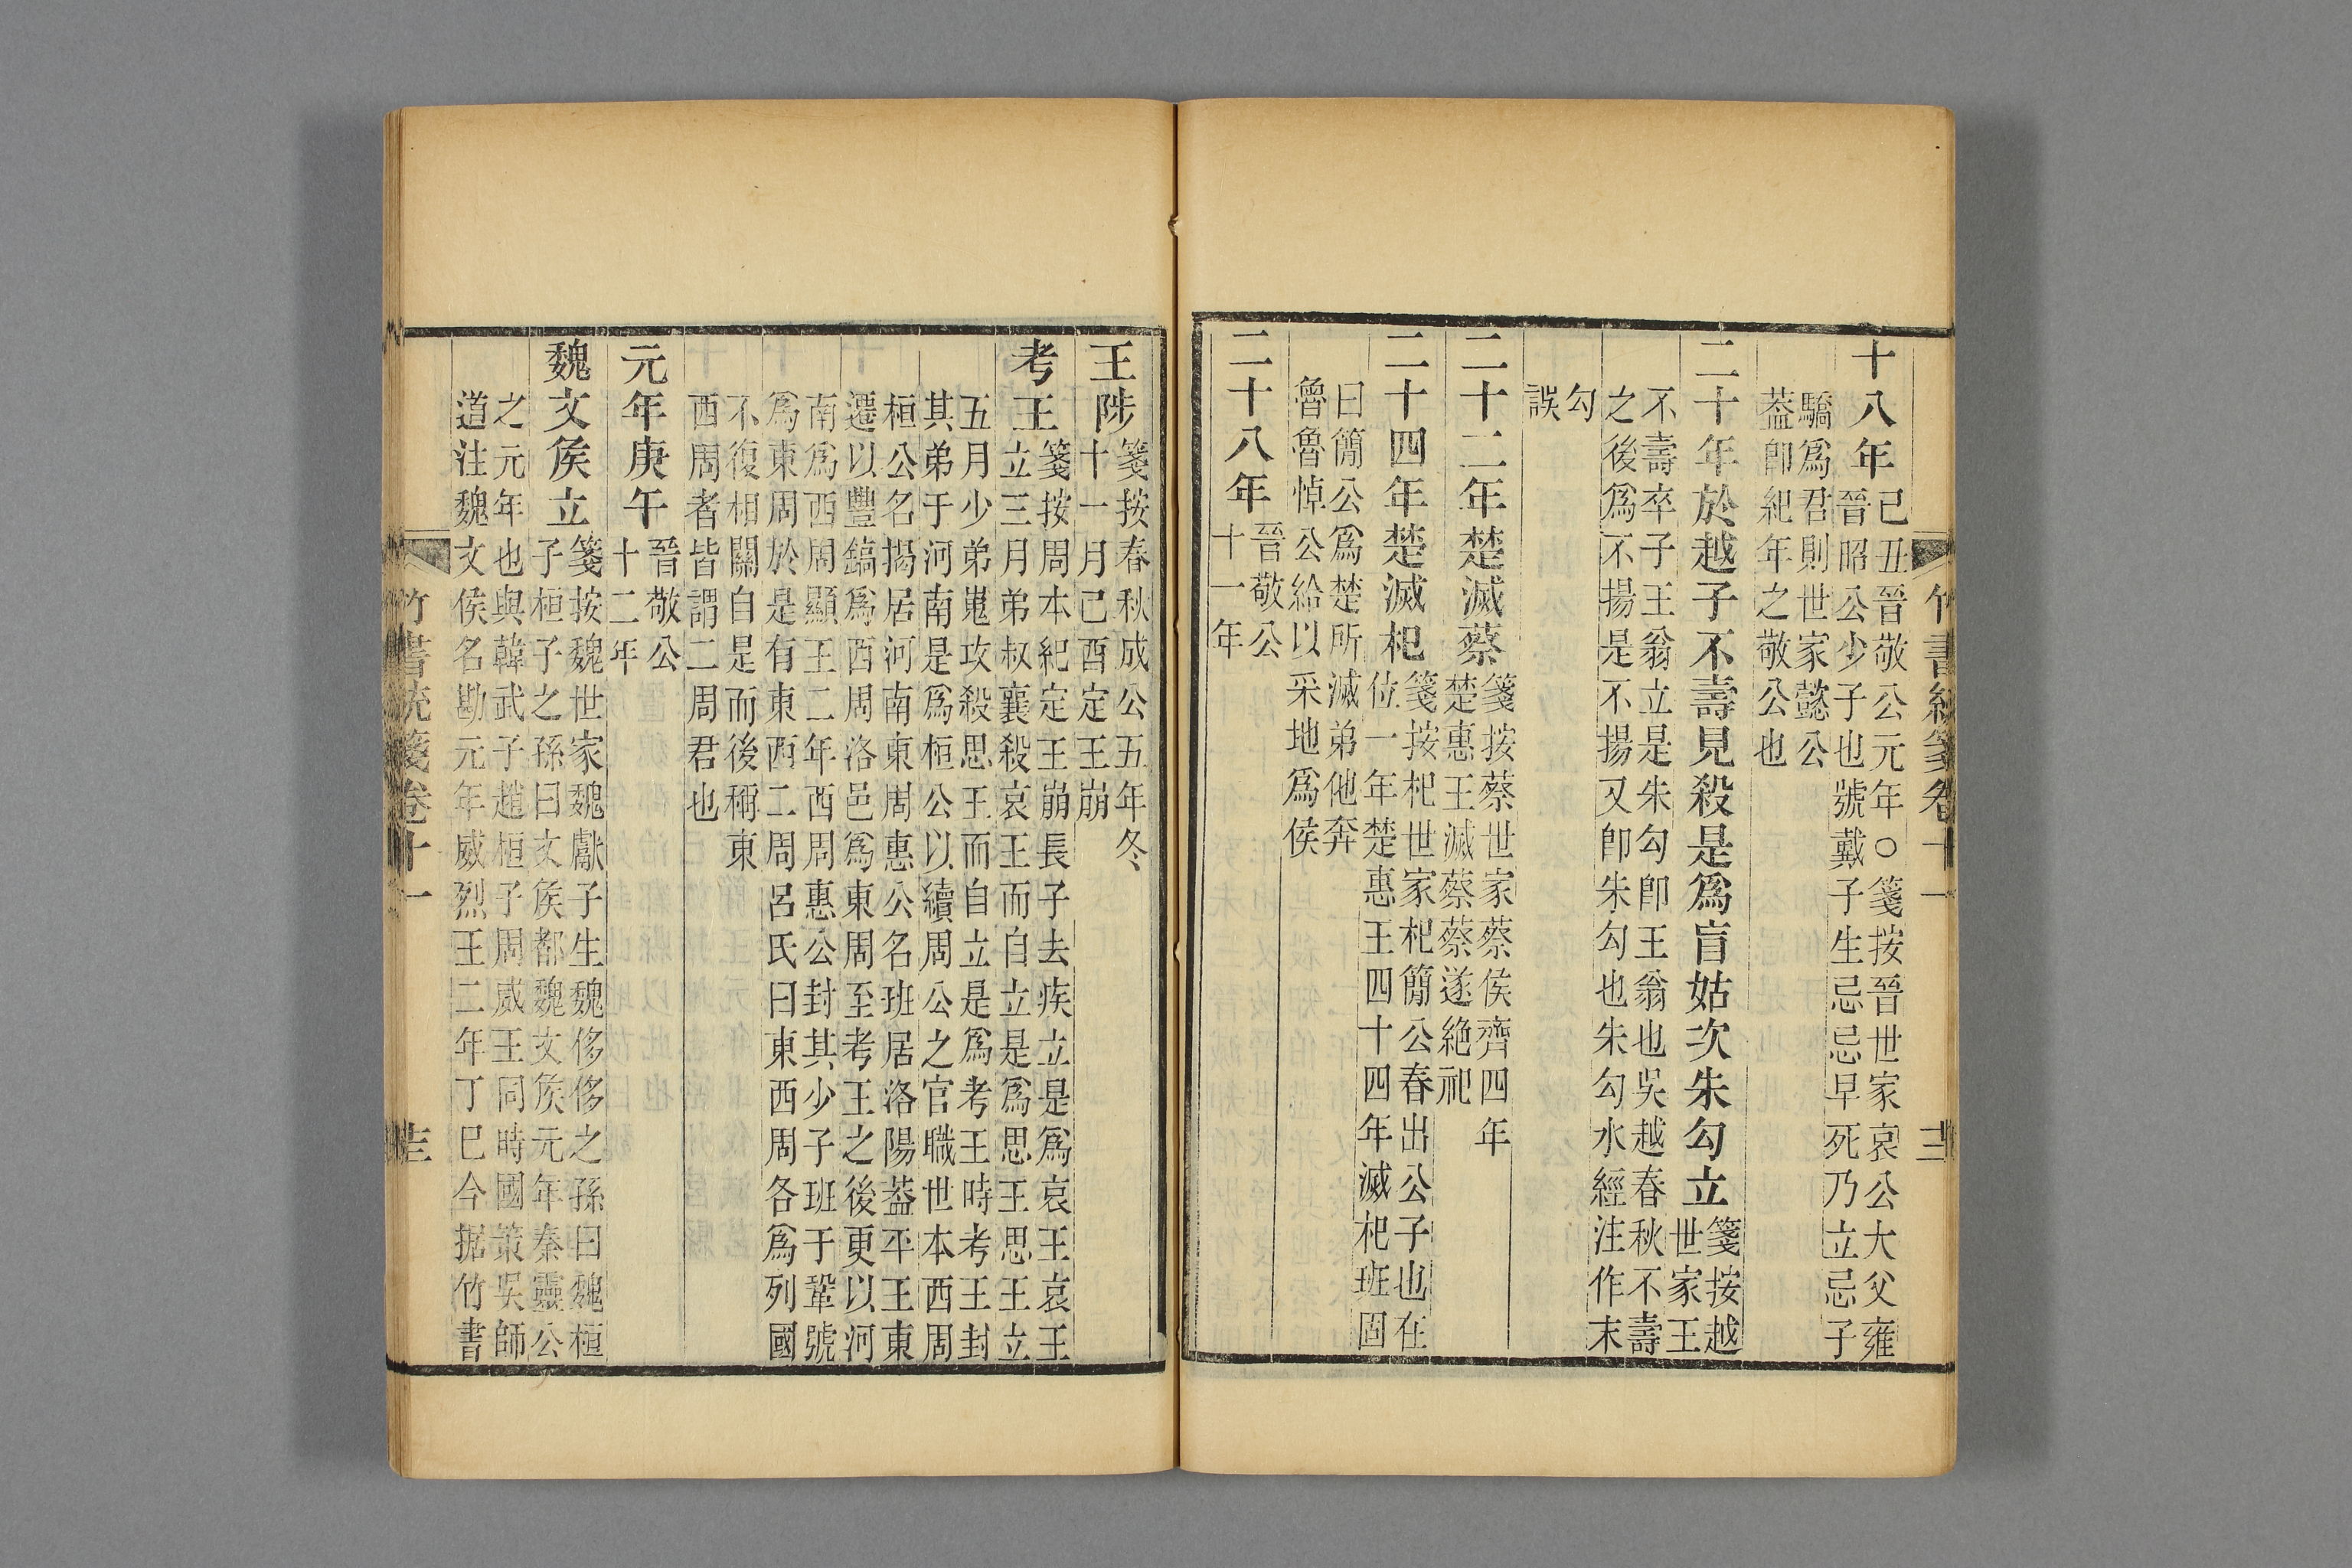 竹書統箋卷十一
十八年己丑晉敬公元年○箋按晉世家哀公大父雍
晉昭公少子也號戴子生忌忌早死乃立忌子
驕爲君則世家懿公
蓋卽紀年之敬公也
二十年於越子不壽見殺是爲盲姑次朱勾立箋按越
世家王
不壽卒子王翁立是朱勾卽王翁也吳越春秋不壽
之後爲不揚是不揚又卽朱勾也朱勾水經注作末
勾
誤
二十二年楚滅蔡箋按蔡世家蔡侯齊四年
楚惠王滅蔡蔡遂絶祀
二十四年楚滅杞箋按杞世家杞簡公春出公子也在
位一年楚惠王四十四年滅杞班固
曰簡公爲楚所滅弟他奔
魯魯悼公給以采地爲侯
二十八年晉敬公
十一年
王陟箋按春秋成公五年冬
十一月己酉定王崩
考王箋按周本紀定王崩長子去疾立是爲哀王哀王
立三月弟叔襄殺哀王而自立是爲思王思王立
五月少弟嵬攻殺思王而自立是爲考王時考王封
其弟于河南是爲桓公以續周公之官職世本西周
桓公名揭居河南東周惠公名班居洛陽葢平王東
遷以豐鎬爲西周洛邑爲東周至考王之後更以河
南爲西周顯王二年西周惠公封其少子班于鞏號
爲東周於是有東西二周呂氏曰東西周各爲列國
不復相關自是而後稱東
西周者皆謂二周君也
元年庚午晉敬公
十二年
魏文侯立箋按魏世家魏獻子生魏侈侈之孫曰魏桓
子桓子之孫曰文侯都魏文侯元年秦靈公
之元年也與韓武子趙桓子周威王同時國策吳師
道注魏文侯名勘元年威烈王二年丁巳今据竹書
竹書統箋卷十一
十三